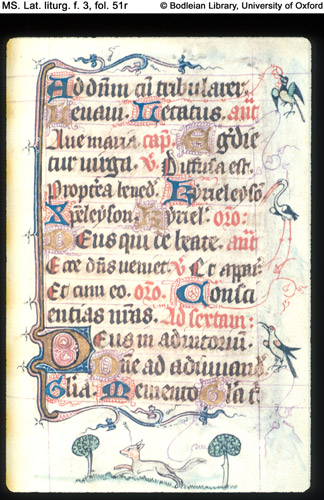 MS. Lat. liturg. f. 3, fol. 51r
© Bodleian Library, University of Oxford
Ad dn̄m cū tribularer.
Leuaui. Letatus. an̄t
Aue maria cap̄. Egredie
tur uirga. v̄. Diffusa est.
Propterea bened̄. Kyrieleyso᷑
Xp̄eleyson. Kyriel᷑. oro᷑:
Deus qui de beate. an̄t
Ecce dn̄s ueniet. v̄ Et appar᷑
Et cum eo. oro᷑. Consci
entias nr̄as. Ad sextam:
Deus in adiutoriū.
Dn̄e ad adiuuand᷑
Gl̄ia. Memento Gl̄ia t᷑.